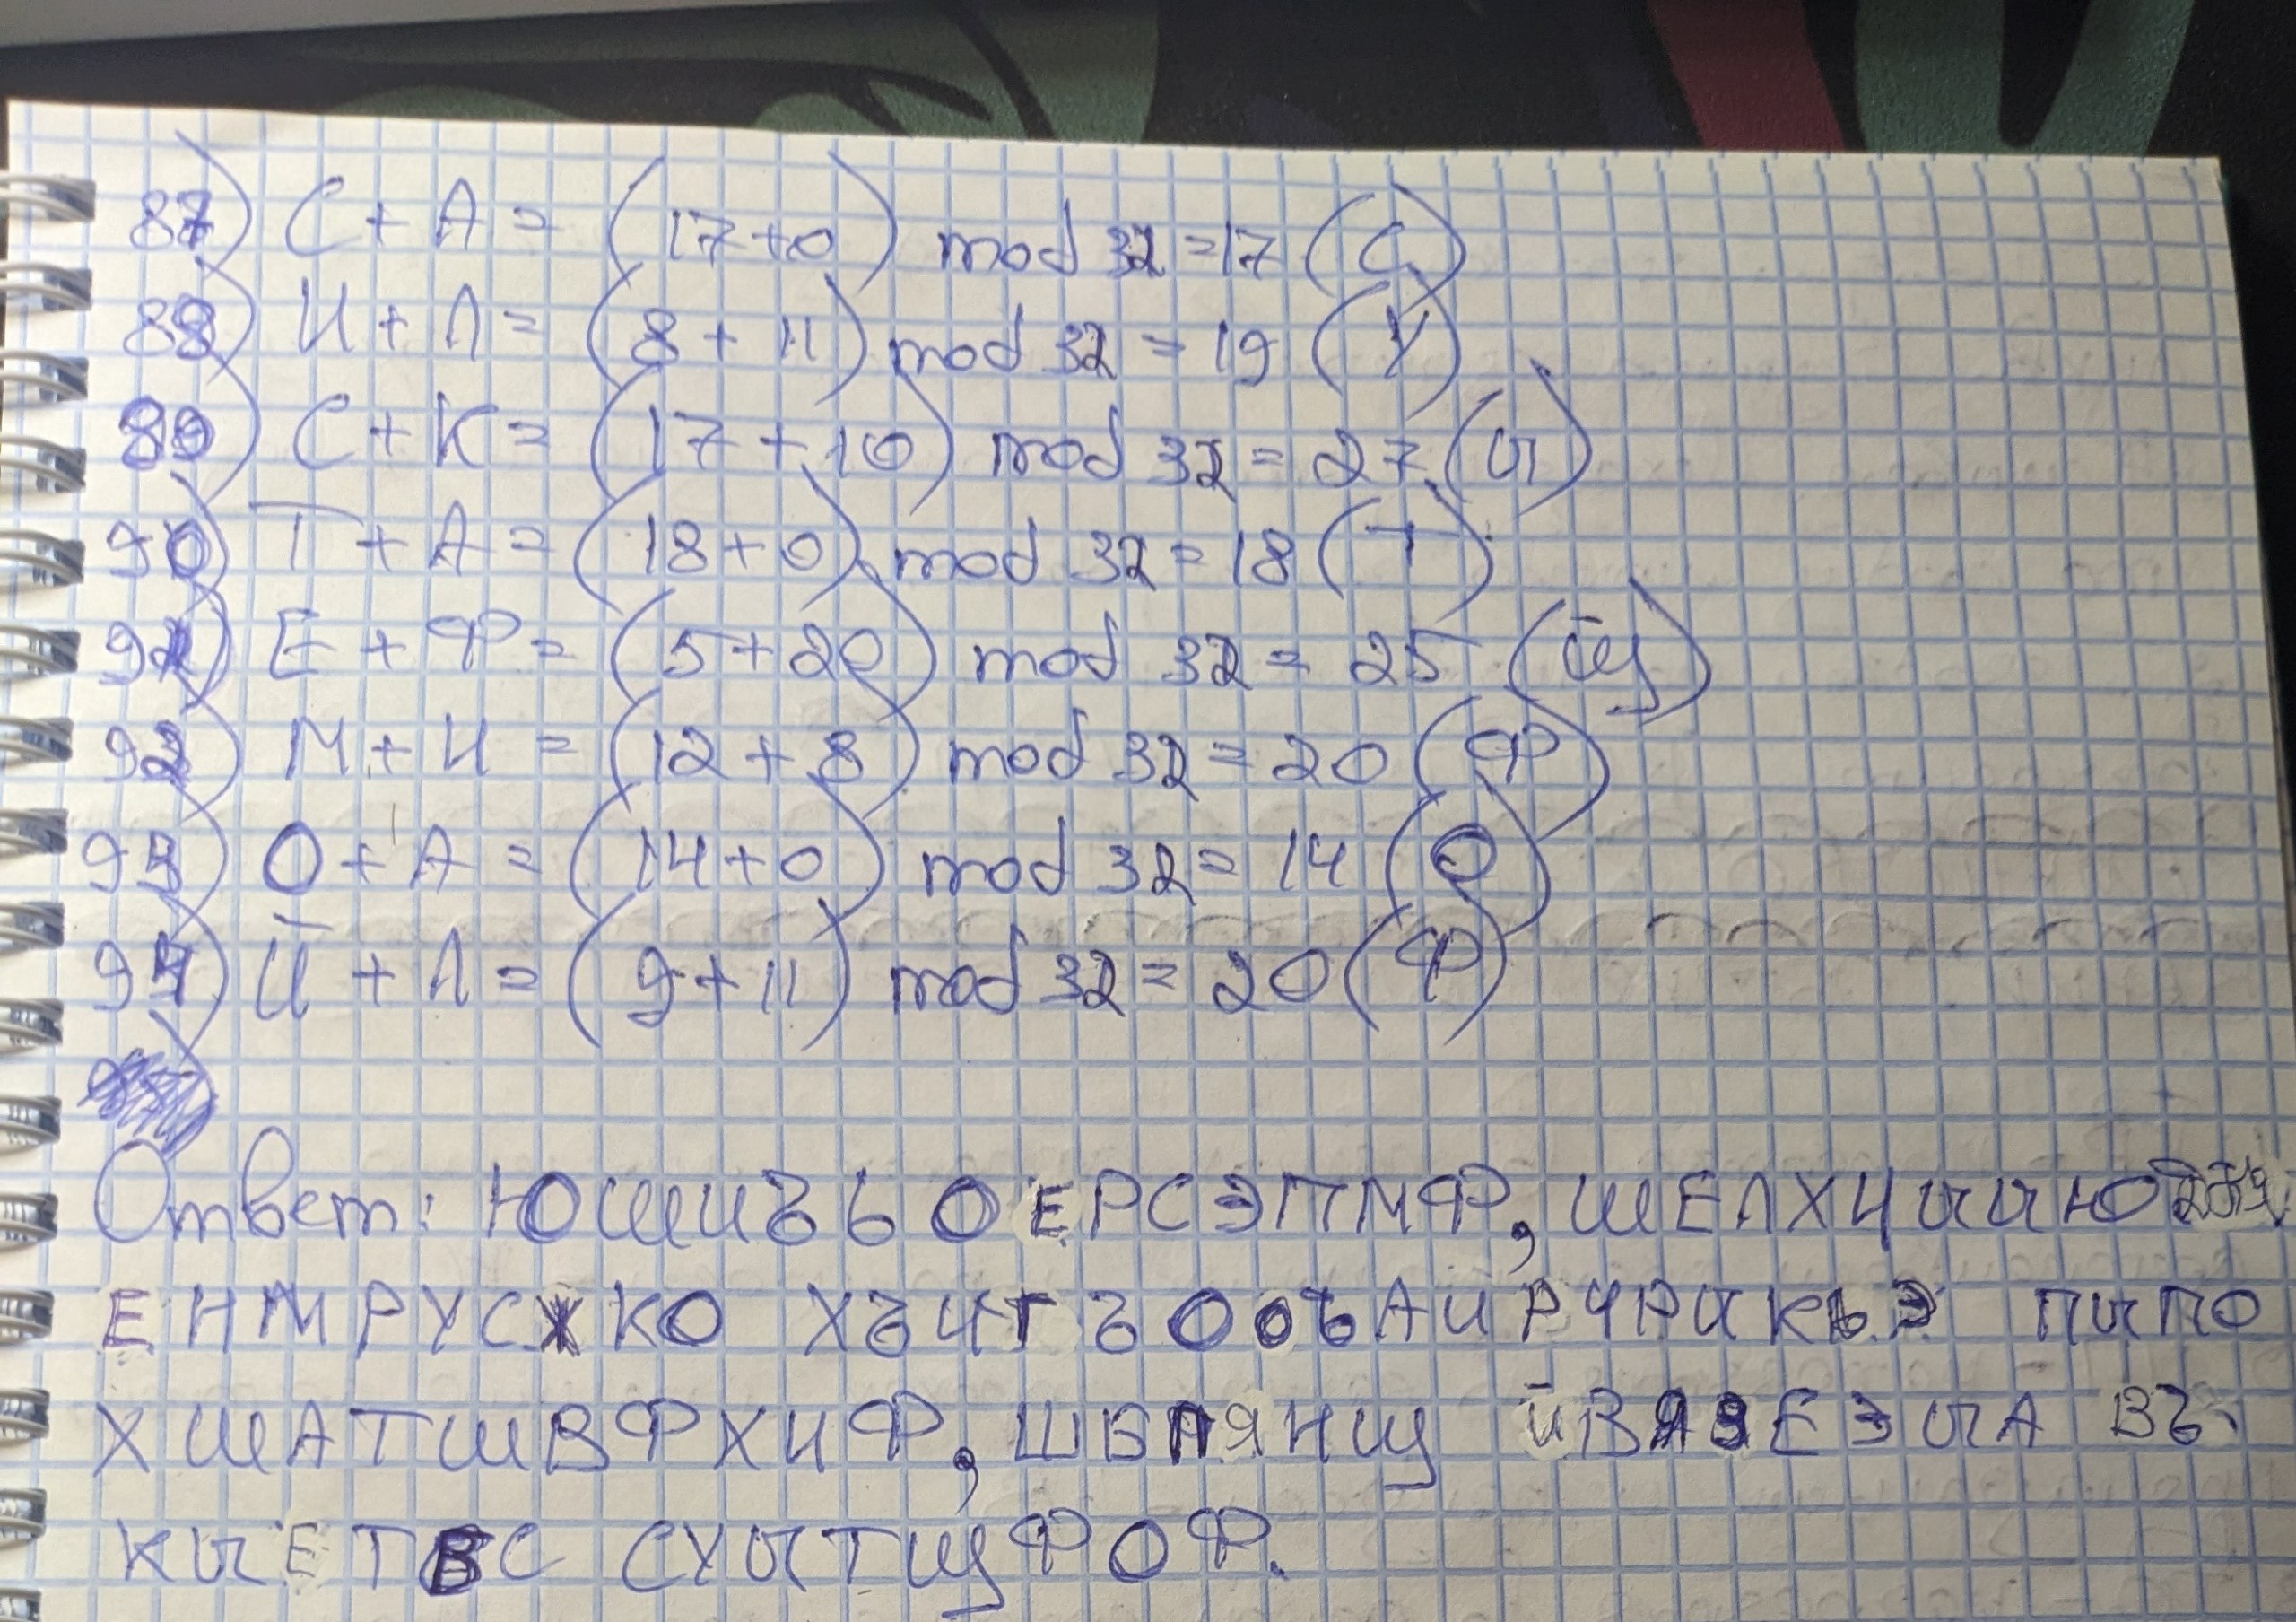 87) С + А = (17+0) mod 32 = 17 (С)
88) И + Л = (8 + 11) mod 32 = 19 (У)
89) С + К = (17 + 10) mod 32 = 27 (Ы)
90) Т + А = (18+0) mod 32 = 18 (Т)
91) Е + Ф = (5+20) mod 32 = 25 (Щ)
92) М + И = (12 + 8) mod 32 = 20 (Ф)
93) О + А = (14+0) mod 32 = 14 (О)
94) Й + Л = (9+11) mod 32 = 20 (Ф)
Ответ: ЮШИЪЬОЕРСЭПМФ, ШЕЛХЧЫЫЮ
ЕНМРУСЖКО ХЪЧГЪООЪАИРЧРИКЬЭ ПЫПО
ХШАТШВФХИФ, ШБПЯНЩ ЙВЯЗЕЭЫА ВЪ
КЫЕТВС СУЫТЩФОФ.